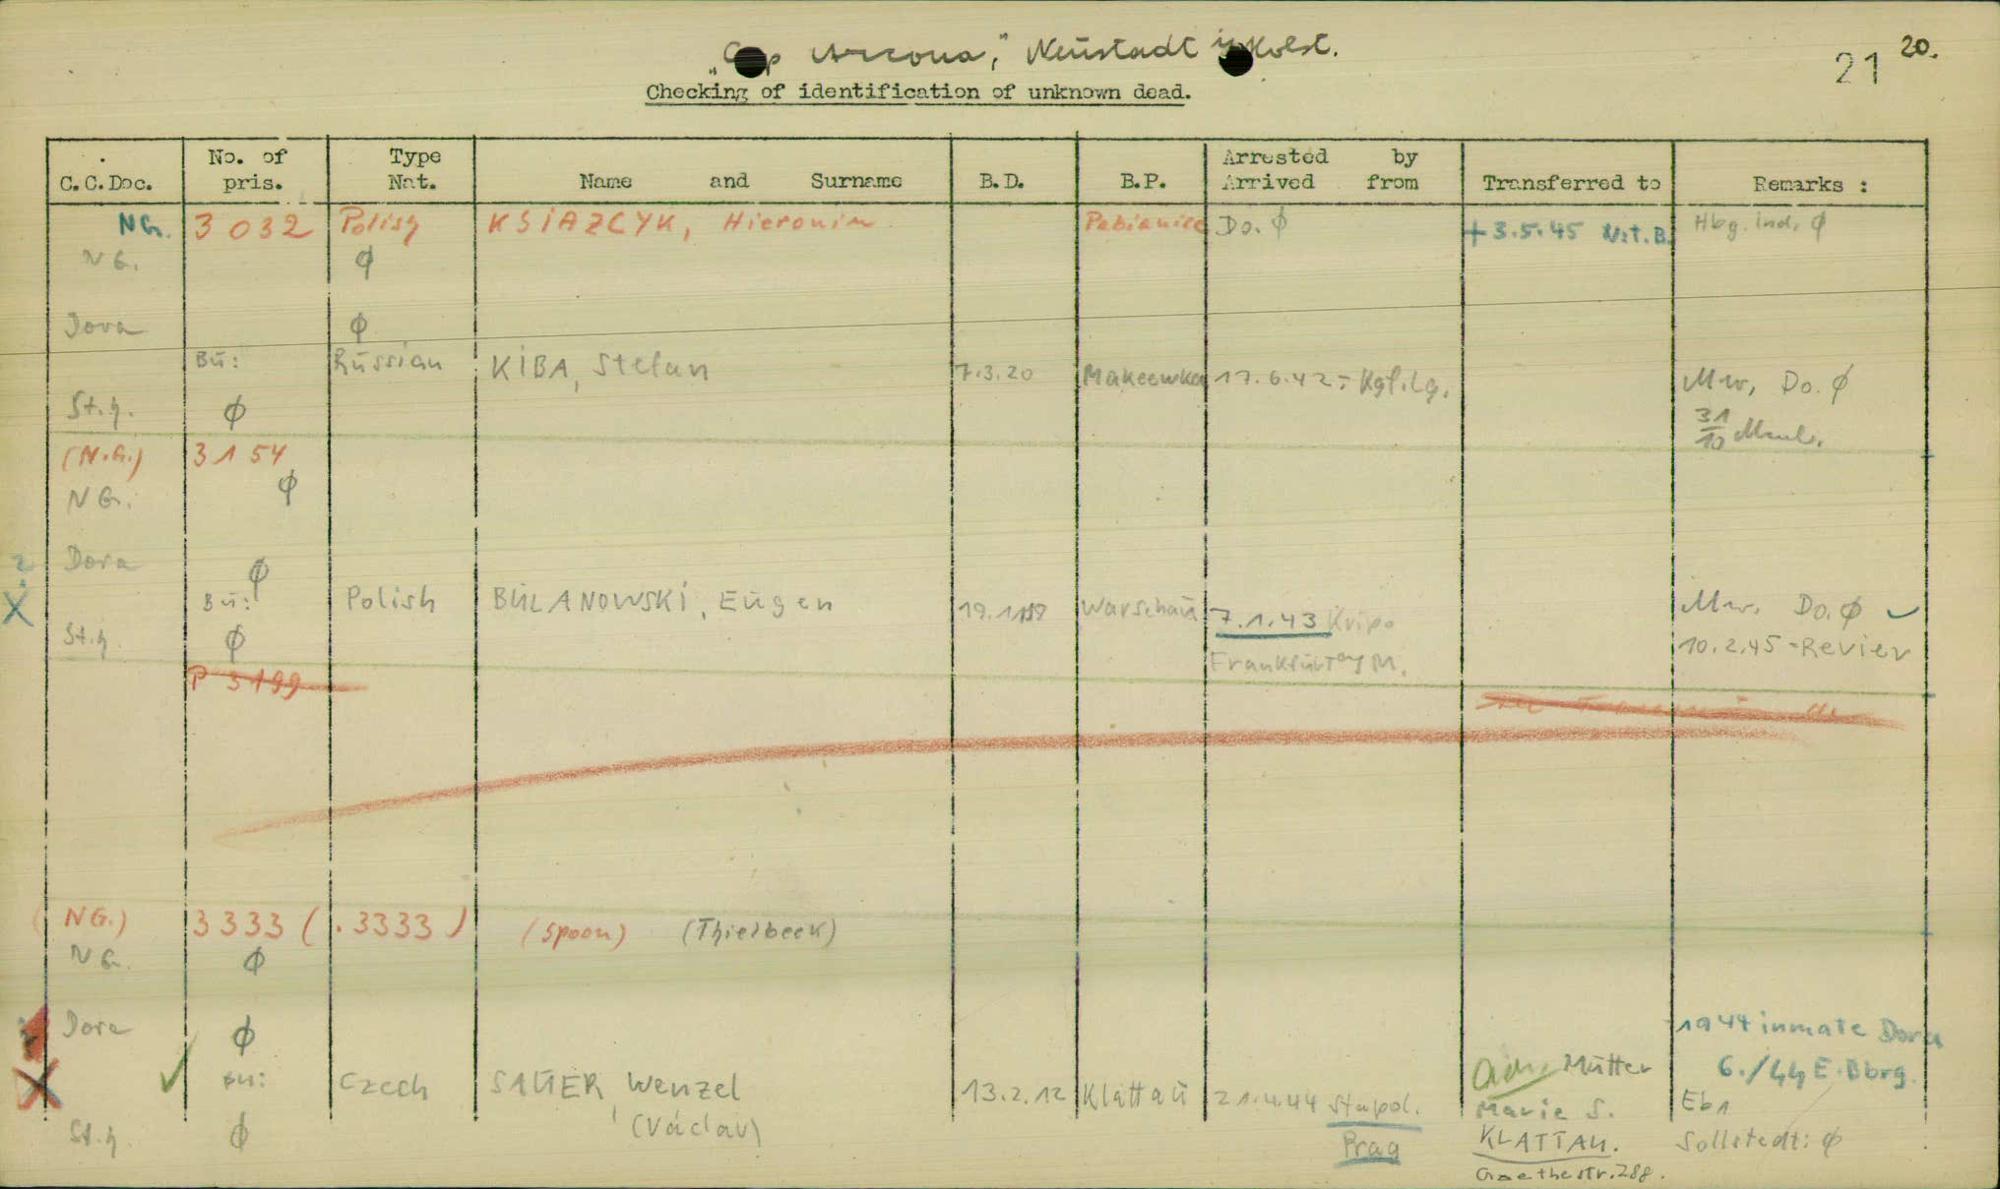 "Cap Arcona," Neustadt i/Holst.
21 20.
Checking of identification of unknown dead.
C.C.Doc. No. of pris. Type Nat. Name and Surname B.D. B.P. Arrested by Arrived from Transferred to Remarks :
NG. 3032 Polish KSIAZCYK, Hieronim Pabianice Do. ϕ +3.5.45 N.T.B. Hbg. ind. ϕ
NG. ϕ
Dora ϕ
Bu: Russian KIBA, Stefan 7.3.20 Makeewka 17.6.42 - Kgf.Lg. Mw, Do. ϕ
St.h. ϕ 31/10
(N.G.) 3154
NG. ϕ
2 Dora ϕ
X Bu: Polish BULANOWSKI, Eugen Warschau 7.1.43 Kripo Mw. Do. ϕ
St.h. ϕ Frankfurt a/M. 10.2.45 - Revier
P 3199
(NG.) 3333 (.3333) (Spoon) (Thielbeck)
NG. ϕ
Dora ϕ 1944 inmate Dora
X Bu: Czech SAUER, Wenzel 13.2.12 Klattau 21.4.44 Stapol. Adr. Mutter 6./44 E. Bbrg.
(Václav) Marie S. Eb1
St.h. ϕ Prag KLATTAU. Sollstedt: ϕ
Goethestr. 288.